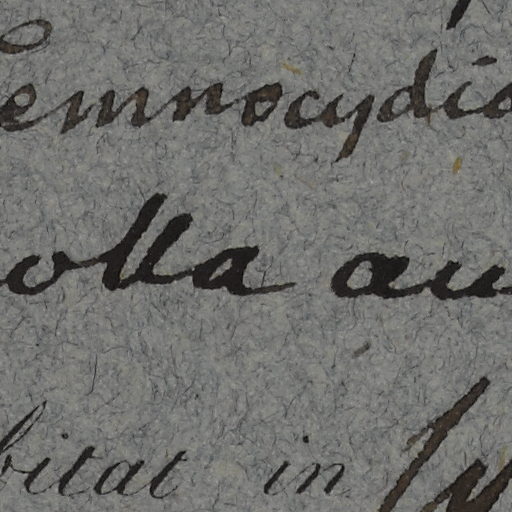 emnocydia
olla au
bitat in